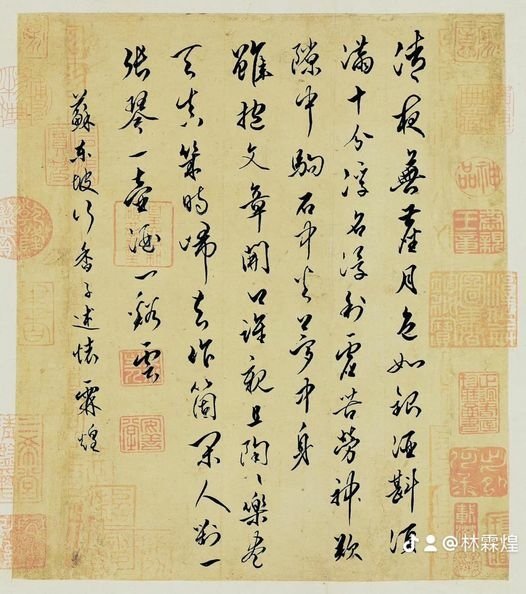 清夜無塵月色如銀酒斟須
滿十分浮名浮利虛苦勞神歎
隙中駒石中火夢中身
雖抱文章開口誰親且陶々樂盡
天真幾時歸去作箇閑人對一
張琴一壺酒一谿雲
蘇東坡行香子述懷霖煌
@林霖煌